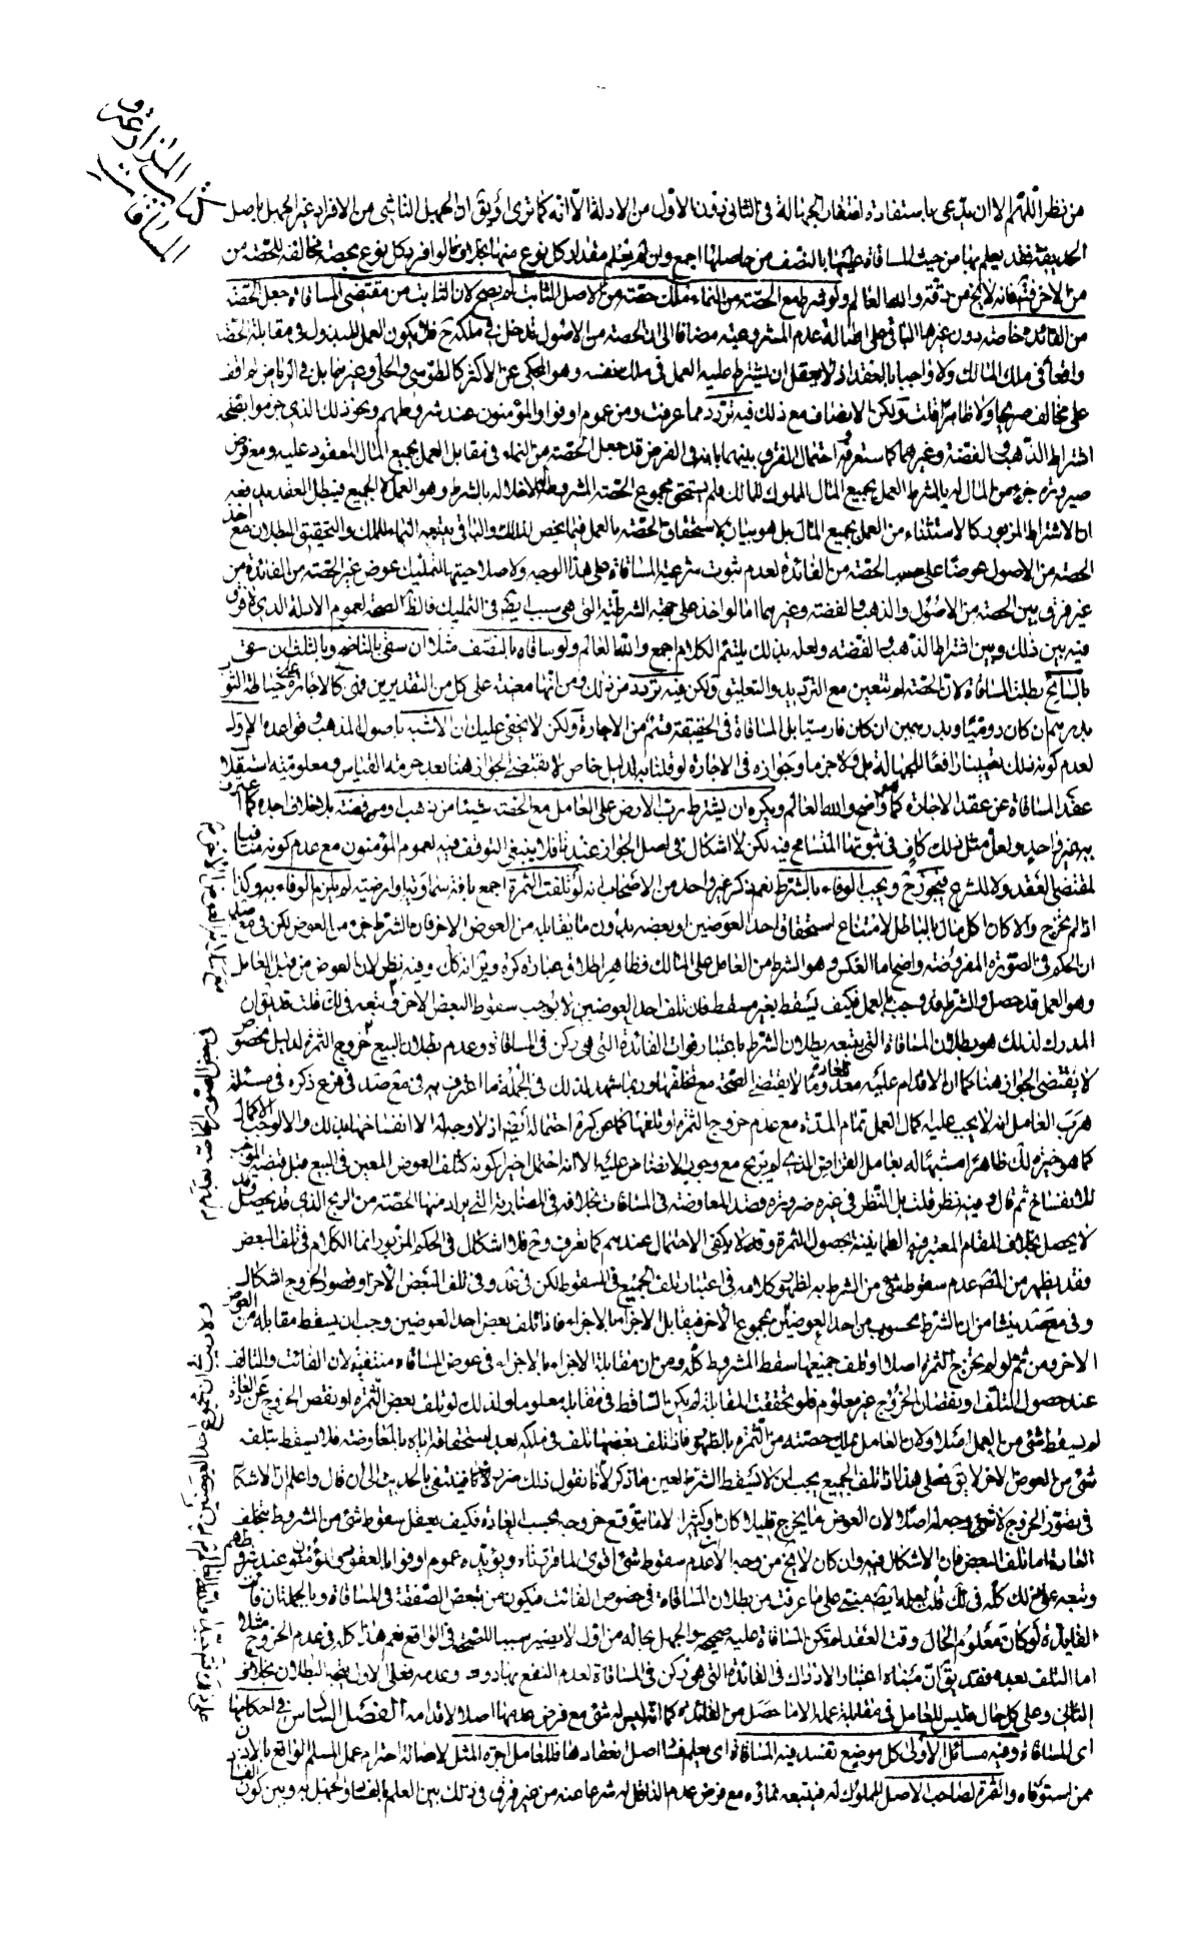 كتاب المزارعة و
المساقات
من نظر اللهم الا ان يدعى باستفادة اغتفار الجهالة في الثاني دون الاول من الادلة الا انه كما ترى او يق ان الجهل الناشى من الافراد غير الجهل باصل
الحديقة فقد يعلم بها من حيث المساقاة عليها بالنصف من حاصلها اجمع وان لم يعلم مقدار كل نوع منها بخلاف ما لو افرد كل نوع بحصة مخالفة للحصة من
من الاخر فتم فانه لا يخ من دقة والله العالم ولو شرط مع الحصة من النماء ملك حصة من الاصل الثابت لم يصح لان الثابت من مقتضى المساقاة جعل الحصة
من الفائدة خاصة دون غيرها الباقي على اصالة عدم المشروعية مضافا الى ان الحصة من الاصول تدخل في ملكه ح فلا يكون العمل المبذول في مقابلة الحصة
واقعا في ملك المالك ولا واجبا بالعقد اذ لا يعقل ان يشترط عليه العمل في ملك نفسه وهو المحكى عن الاكثر كالطوسى والحلى وغيرهما بل في الرياض لم اقف
على مخالف صريحا ولا ظاهرا قلت ولكن الانصاف مع ذلك فيه تردد مما عرفت ومن عموم اوفوا والمؤمنون عند شروطهم ونحو ذلك الذى جزموا بصحة
اشتراط الذهب والفضة وغيرهما كما ستعرفه احتمال الفرق بينهما بانه في الفرض قد جعل الحصة من النماء في مقابل العمل بجميع المال المعقود عليه ومع فرض
صيرورة جزء من المال له بالشرط العمل بجميع المال المملوك للمالك فلم يستحق مجموع الحصة المشروطة له لاخلاله بالشرط وهو العمل لا الجميع فيبطل العقد يدفعه
ان الاشتراط المزبور كالاستثناء من العمل بجميع المال بل هو بيان لاستحقاق الحصة بالعمل فيما يخص المالك والباقي يتبعه النماء للملك والتحقيق البطلان مع اخذ
الحصة من الاصول عوضا على حسب الحصة من الفائدة لعدم ثبوت شرعية المساقاة على هذا الوجه ولا صلاحيتها لتمليك عوض غير الحصة من الفائدة من
غير فرق بين الحصة من الاصول والذهب والفضة وغيرهما اما لو اخذ على جهة الشرطية التى هي سبب ايضا في التمليك فالظ الصحة لعموم الادلة الذى لا فرق
فيه بين ذلك وبين اشتراط الذهب والفضة ولعله بذلك يلتئم الكلام اجمع والله العالم ولو ساقاه بالنصف مثلا ان سقى بالناضح وبالثلث ان سقى
بالسايح بطلت المساقاة لان الحصة لم تتعين مع الترديد والتعليق ولكن فيه تردد من ذلك ومن انها معينة على كل من التقديرين فهى كالاجارة على خياطة الثوب
بدرهم ان كان روميا وبدرهمين ان كان فارسيا بل المساقاة في الحقيقة قسم من الاجارة ولكن لا يخفى عليك ان الاشبه باصول المذهب وقواعده الاول
لعدم كونه ذلك تعيينا رافعا للجهالة بل ولا جزما وجوازه في الاجارة لو قلنا به لدليل خاص لا يقتضى الجواز هنا بعد حرمة القياس ومعلومية استقلال
عقد المساقاة عن عقد الاجارة كما هو واضح والله العالم ويكره ان يشترط رب الارض على العامل مع الحصة شيئا من ذهب او فضة بلا خلاف اجده كما اعترف
به غير واحد ولعل مثل ذلك كاف في ثبوتها المتسامح فيه لكن لا اشكال في اصل الجواز عندنا فلا ينبغى التوقف فيه لعموم المؤمنون مع عدم كونه منافيا
لمقتضى العقد ولا للشرع فيجوز ح ويجب الوفاء بالشرط نعم ذكر غير واحد من الاصحاب انه لو تلفت الثمرة اجمع بافة سماوية او ارضية لم يلزم الوفاء به وكذا
اذا لم يخرج والا كان اكل مال بالباطل لامتناع استحقاق احد العوضين او بعضه بدون ما يقابله من العوض الاخر فان الشرط جزء من العوض لكن في مع صد
ان الحكم في الصورة المفروضة واضح اما العكس وهو الشرط من العامل على المالك فظاهر اطلاق عبارة كره وير انه كك وفيه نظر لان العوض من قبل العامل
وهو العمل قد حصل والشرط قد وجب بالعمل فكيف يسقط بغير مسقط فان تلف احد العوضين لا يوجب سقوط البعض الاخر وتبعه في لك قلت قد يق ان
المدرك لذلك هو بطلان المساقاة التى يتبعه بطلان الشرط باعتبار فوات الفائدة التى هي ركن في المساقاة وعدم بطلان البيع بعد خروج الثمرة لدليل بخصوص
لا يقتضى الجواز هنا كما ان الاقدام عليه معلوما لا يقتضى الصحة مع تخلفها وربما شهد لذلك في الجملة ما اعترف به في مع صد في فرع ذكره في مسئلة
هرب العامل انه لا يجب عليه كمال العمل تمام المدة مع عدم خروج الثمرة او تلفها كما عن كره احتماله ايضا اذ لا وجه له الا انفساخها بذلك والا لوجب الاكمال
كما هو خيرة لك ظاهرا مشبها له بعامل القراض الذى لو يربح مع وجوب الانضاض عليه الا انه احتمل اخيرا كونه كتلف العوض المعين في البيع قبل قبضه الموجب
للانفساخ ثم قال وفيه نظر قلت بل النظر في غيره ضرورة قصد المعاوضة في المساقات بخلافه في المضاربة التى يراد منها الحصة من الربح الذى قد يحصل وقد
لا يحصل بخلاف المقام المعتبر فيه الطمانينة بحصول الثمرة وقد لا يكفى الاحتمال عندهم كما تعرف وح فلا اشكال في الحكم المزبور انما الكلام في تلف البعض
فقد يظهر من المص عدم سقوط شئ من الشرط به لظهور كلامه في اعتبار تلف الجميع في السقوط لكن في عد وفي تلف البعض الاخر او قصور الخروج اشكال
وفي مع صد ينشا من ان الشرط محسوب من احد العوضين بمجموع الاخر فيقابل الاجزاء بالاجزاء فاذا تلف بعض احد العوضين وجب ان يسقط مقابله من العوض
الاخر ومن ثم لو لم يخرج الثمرة اصلا او تلف جميعها سقط المشروط كله ومن ان مقابلة الاجزاء بالاجزاء في عوض المساقاة منتفية لان الفائت والتالف
عند حصول التلف او نقصان الخروج غير معلوم فلو تحققت المقابلة لم يكن الساقط في مقابله معلوما ولذلك لو تلف بعض الثمرة او نقص الخروج عن العادة
لم يسقط شئ من العمل اصلا ولان العامل يملك حصته من الثمرة بالظهور فاذا تلف بعضها تلف في ملكه بعد استحقاقه اياه بالمعاوضة فلا يسقط بتلفه
شئ من العوض الاخر لا يق فعلى هذا اذا تلف الجميع يجب ان لا يسقط الشرط لعين ما ذكر لانا نقول ذلك الى ان قال واعلم ان الاشكال
في قصور الخروج لا وجه له اصلا لان العوض ما يخرج قليلا كان او كثيرا لا ما يتوقع خروجه بحسب العادة فكيف يعقل سقوط شئ من المشروط بتخلف
العادة اما تلف البعض فان الاشكال فيه وان كان لا يخ من وجه الا ان عدم سقوط شئ اقوى لما قربناه ويؤيده عموم اوفوا بالعقود والمؤمنون عند شروطهم
وتبعه على ذلك كله في لك قلت لعله ايضا مبنى على ما عرفت من بطلان المساقاة في خصوص الفائت فيكون من تبعض الصفقة في المساقاة وبالجملة ان فات
الفايدة لو كان معلوم الحال وقت العقد لم تكن المساقاة عليه صحيحة والجهل بحاله من اول الامر لا يصير سببا للصحة في الواقع نعم هذا كله في عدم الخروج مثلا
اما التلف بعده فقد يق ان مبناه اعتبار الادراك في الفائدة التى هو ركن في المساقاة لعدم النفع بها بدونه وعدمه فعلى الاول يتجه البطلان بخلافه على
الثانى وعلى كل حال فليس للعامل في مقابلة عمله الا ما حصل من الفائدة كما انه ليس له شئ مع فرض عدمها اصلا لاقدامه الفصل السادس في احكامها
اى المساقاة وفيه مسائل الاولى كل موضع تفسد فيه المساقاة اى يعلم فسا اصل انعقادها فللعامل اجرة المثل لاصالة احترام عمل المسلم الواقع بالاذن
ممن استوفاه والثمرة لصاحب الاصل المملوك له فيتبعه نماؤه مع فرض عدم الناقل له شرعا عنه من غير فرق في ذلك بين العلم بالفساد والجهل به وبين كون الفسا